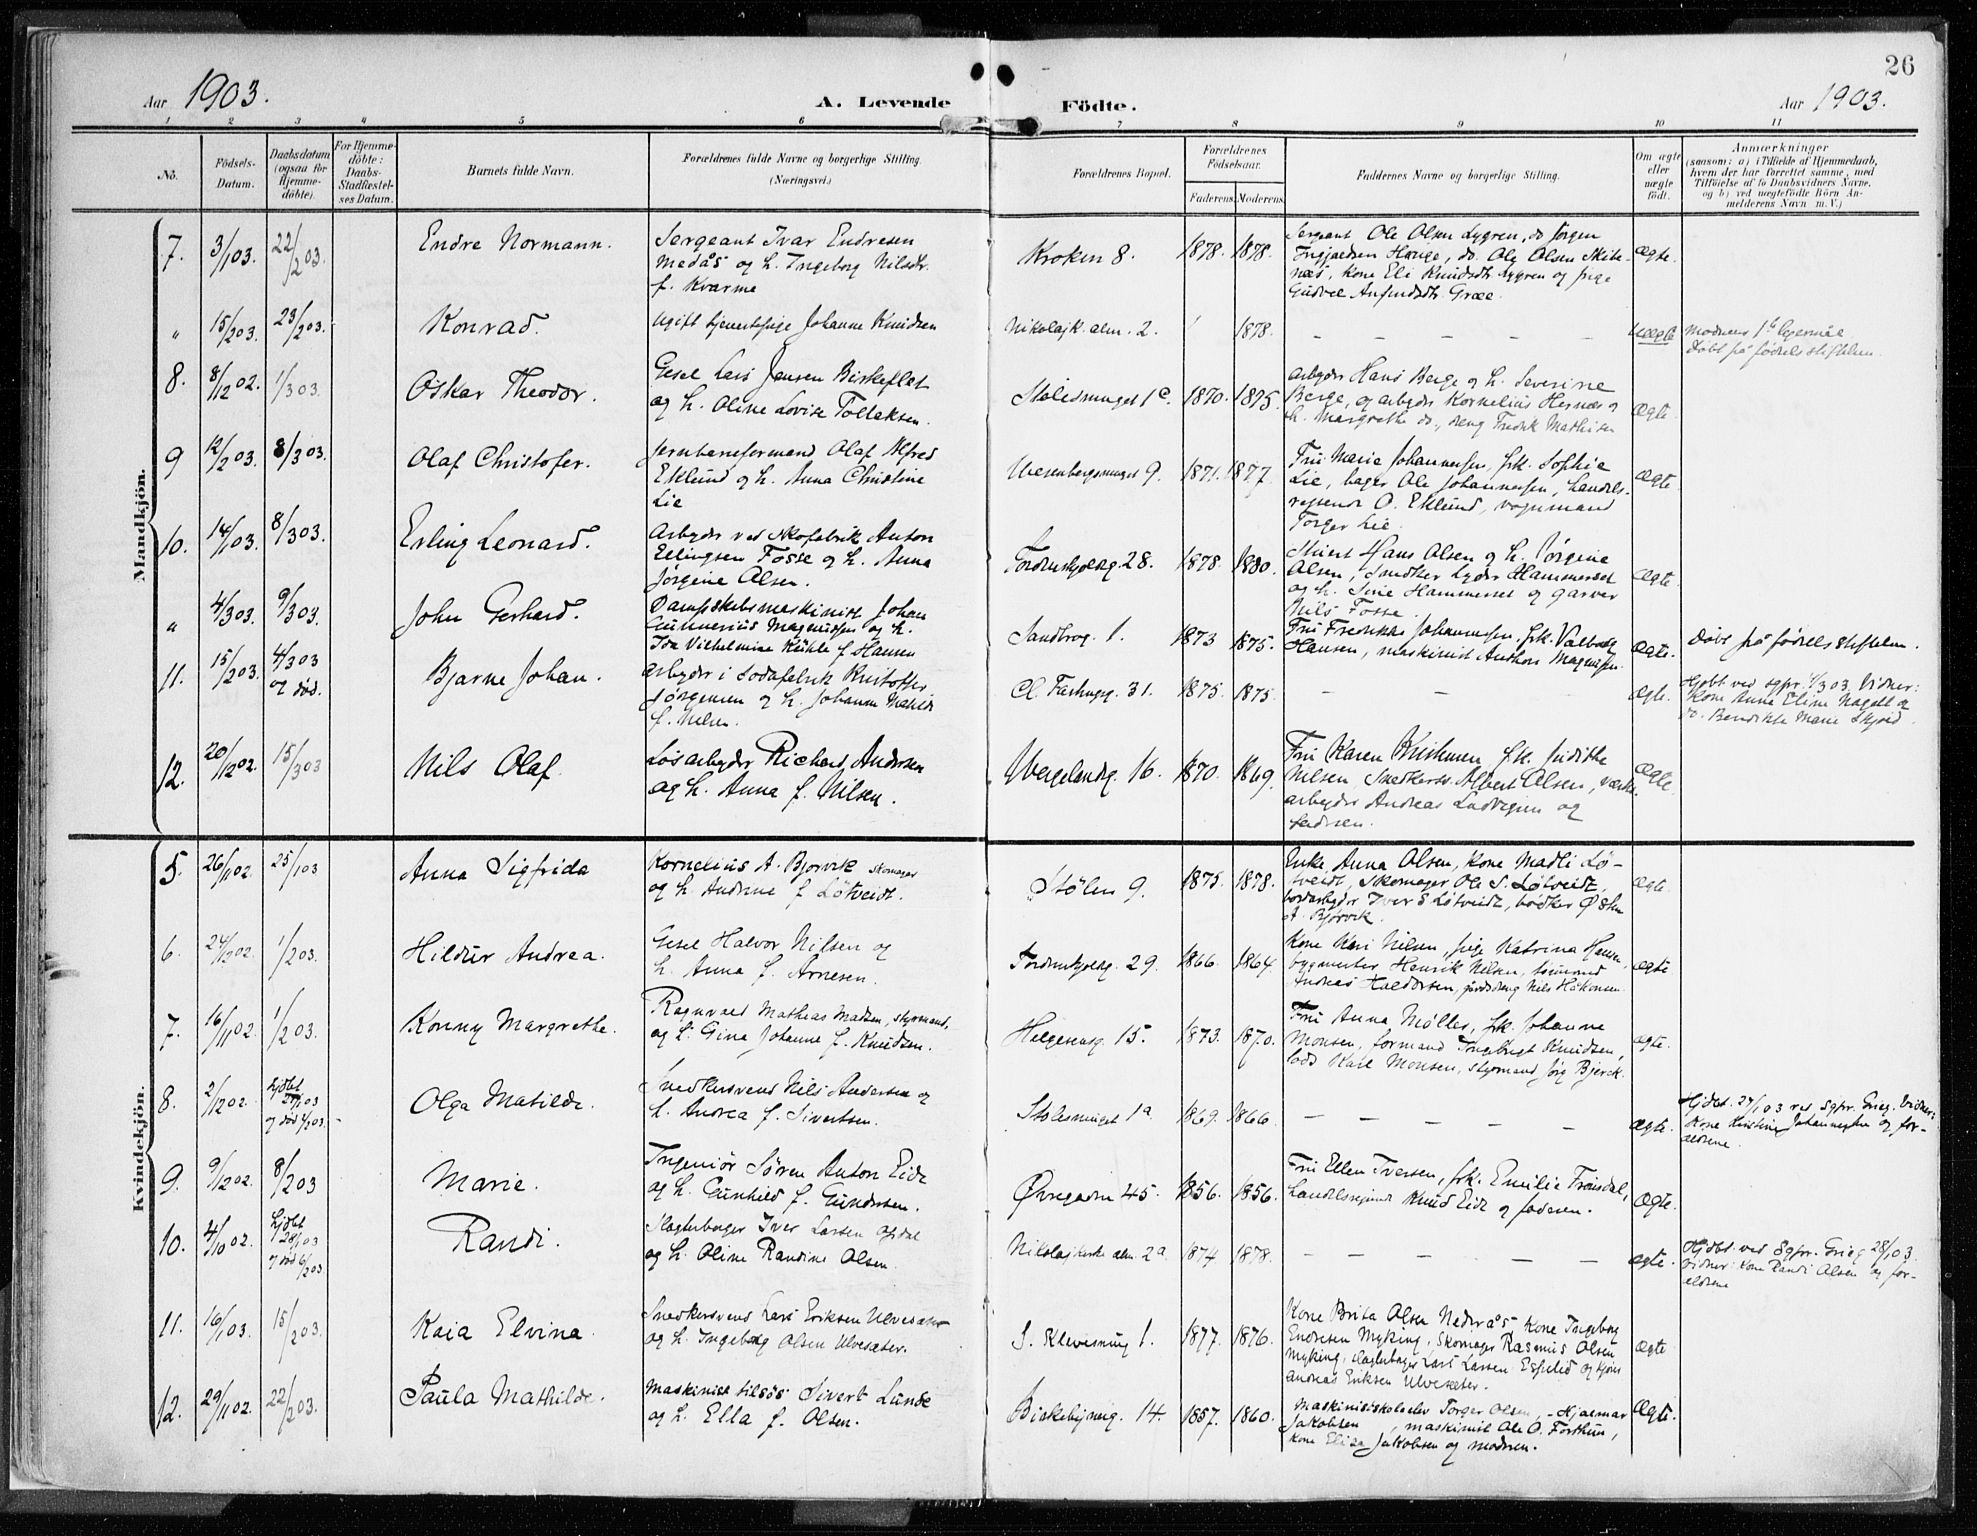 26
Aar 1903.
A. Levende Födte.
Aar 1903.
1 2 3 4 5 6 7 8 9 10 11
No.
Födsels-Datum.
Daabsdatum (ogsaa for Hjemme-döbte).
For Hjemme-döbte: Daabs-Stadfæstel-ses Datum.
Barnets fulde Navn.
Forældrenes fulde Navne og borgerlige Stilling.
(Næringsvei.)
Forældrenes Bopæl.
Forældrenes Födselsaar.
Faderens. Moderens.
Faddernes Navne og borgerlige Stilling.
Om ægte eller uægte födt.
Anmærkninger
(saasom: a) i Tilfælde af Hjemmedaab,
hvem der har forrettet samme, med
Tilföielse af to Daabsvidners Navne,
og b) ved uægtefödte Börn An-
melderens Navn m. V.)
Mandkjön.
7. 3/1 03. 22/2 03. Endre Normann.
Sergeant Ivar Endresen
Medås og h. Ingeborg Nilsdtr.
f. Kvarme
Kroken 8. 1878. 1878.
Sergeant Ole Olsen Lygren, do Jørgen
Hauge, do. Ole Olsen
kone Eli Knudsdtr. Lygren og pige
Græe.
Ægte.
" 15/2 03. 23/2 03. Konrad.
Ugift tjenestepige Johanne Knudsen
Nikolajk. alm. 2. 1878. – – – – –
Uægte
Moderens 1ste leiermål
Døbt på fødselsstiftelsen.
8. 8/12 02. 1/3 03. Oskar Theodor.
Gesel Lars Jensen Birkeflet
og h. Oline Lovise Tollaksen.
Stølesmuget 1c. 1870. 1875.
arbeyder Hans Berge og h. Severine
Berge, og arbeyder Kornelius Hernæs og
h. Margrethe do., dreng Fredrik Mathisen
Ægte.
9 12/2 03. 8/3 03. Olaf Christofer.
Jernbaneformand Olaf Alfred
Eklund og h. Anna Christine
Lie
Wesenbergsmuget 9. 1871. 1877.
Fru Marie Johannessen, frk. Sophie
Lie, bager Ole Johannessen, handels-
rejsende O. Eklund, vognmand
Torger Lie.
Ægte.
10. 14/1 03. 8/3 03. Erling Leonard.
Arbeyder ved skofabrik Anton
Ellingsen Fosse og h. Anna
Jørgine Olsen.
Tordenskjoldsg. 28. 1878. 1880.
Hans Olsen og h. Jørgine
Olsen, snedker Hammerset
og h. Sine Hammerset og garver
Nils Fosse.
Ægte.
" 4/3 03. 9/3 03. John Gerhard.
Dampskibsmaskinist Johan
Gunnerius Magnussen og h.
Ida Vilhelmine Kühle f. Hansen
Sandbrog. 1. 1873 1875.
Fru Fredrikke Johannessen, frk. Valborg
Hansen, maskinist Anthon Magnussen.
Ægte.
Døbt på fødselsstiftelsen.
11. 15/2 03. 4/3 03 og død. Bjarne Johan.
Arbeyder i sodafabrik Kristoffer
Jørgensen og h. Johanne Matilde
f. Nilsen.
Cl. Fasting. 31. 1875. 1875. – – – –
Ægte.
Hjdbt ved sgpr. 4/3 03. Vidner:
Kone Anne Eline Nagell og
do. Bendikte Marie
12. 20/12 02. 15/3 03 Nils Olaf.
Løsarbeyder Richard Andersen
og h. Anna f. Nilsen.
Wergelandsg. 16. 1870. 1869.
Fru Karen Kristensen, frk. Judithe
Nilsen, Snedkersv. Albert Olsen,
arbeyder Andreas Ludvigsen og
faderen.
Ægte.
Kvindekjön.
5. 26/11 02. 25/1 03 Anna Sigfrida
Kornelius A. Bjørvik skomager
og h. Andrine f. Løtveidt.
Stølen 9. 1875. 1878.
Enke Anna Olsen, kone Madli Lø-
tveidt, Skomager Ole S. Løtveidt,
Iver S Løtveidt, bødker Østen
A. Bjørvik.
Ægte.
6. 24/12 02. 1/2 03. Hildur Andrea.
Gesel Halvor Nilsen og
h. Anna f. Arnesen.
Tordenskjoldsg. 29. 1866. 1864.
Kone Kari Nilsen, pige Katrina Hansen,
bygmester Henrik Nilsen, tømmermd
Andreas Haldorsen, gårdsdreng Nils Håkonsen
Ægte
7. 16/11 02. 1/2 03. Konny Margrethe.
Ragnvald Mathias Madsen, styrmand,
og h. Gina Johanne f. Knudsen.
Helgesensg. 15. 1873. 1870.
Fru Anna Møller, frk. Johanne
Monsen, formand Ingebrigt Knudsen,
lods Karl Monsen, styrmand Jørg Bjerck.
Ægte.
8. 2/12 02. hjdbt 27/1 03 og død 4/2 03. Olga Matilde.
Snedkersvend Nils Andersen og
h. Andrea f. Sivertsen.
Stølesmuget 1a 1869. 1866. – – – – –
Ægte.
Hjdbt. 27/1 03 ved Sgpr. Grieg. Vidner:
Kone Kristine Johannessen og for-
ældrene.
9. 9/12 02. 8/2 03 Marie.
Ingeniör Søren Anton Eide
og h. Gunhild f. Gundersen.
Øvregaden 45. 1856. 1856.
Fru Ellen Iversen, frk. Emilie Frøisdal,
handelsrejsende Knud Eide og faderen.
Ægte.
10. 4/10 02. hjdbt 28/1 03 og død 6/2 03. Randi.
Slagterborger Iver Larsen
og h. Oline Randine Olsen.
Nikolajkirke alm. 2a 1874 1878. – – – – –
Ægte.
Hjdbt. ved Sgpr. Grieg 28/1 03.
Vidner: kone Randi Olsen og for-
ældrene
11. 16/1 03. 15/2 03. Kaia Elvina.
Snedkersvend Lars Eriksen Ulvesæter
og h. Ingeborg Olsen Ulvesæter.
S. Klevesmug 1. 1877. 1876.
Kone Brita Olsen Nedreås, Kone Ingeborg
Endresen Myking, Skomager Rasmus Olsen
Myking, slagterborger Lars Larsen og
Andreas Eriksen Ulvesæter.
Ægte
12. 29/11 02. 22/2 03. Paula Mathilde.
Maskinist tilsøs Sivert Lunde
og h. Ella f. Olsen.
Birkebejnerg. 14. 1857. 1860.
Maskinistskoleelev Torger Olsen, – Hjalmar
Jakobsen, maskinist Ole O. Forthun,
kone Elisa Jakobsen og moderen.
Ægte.